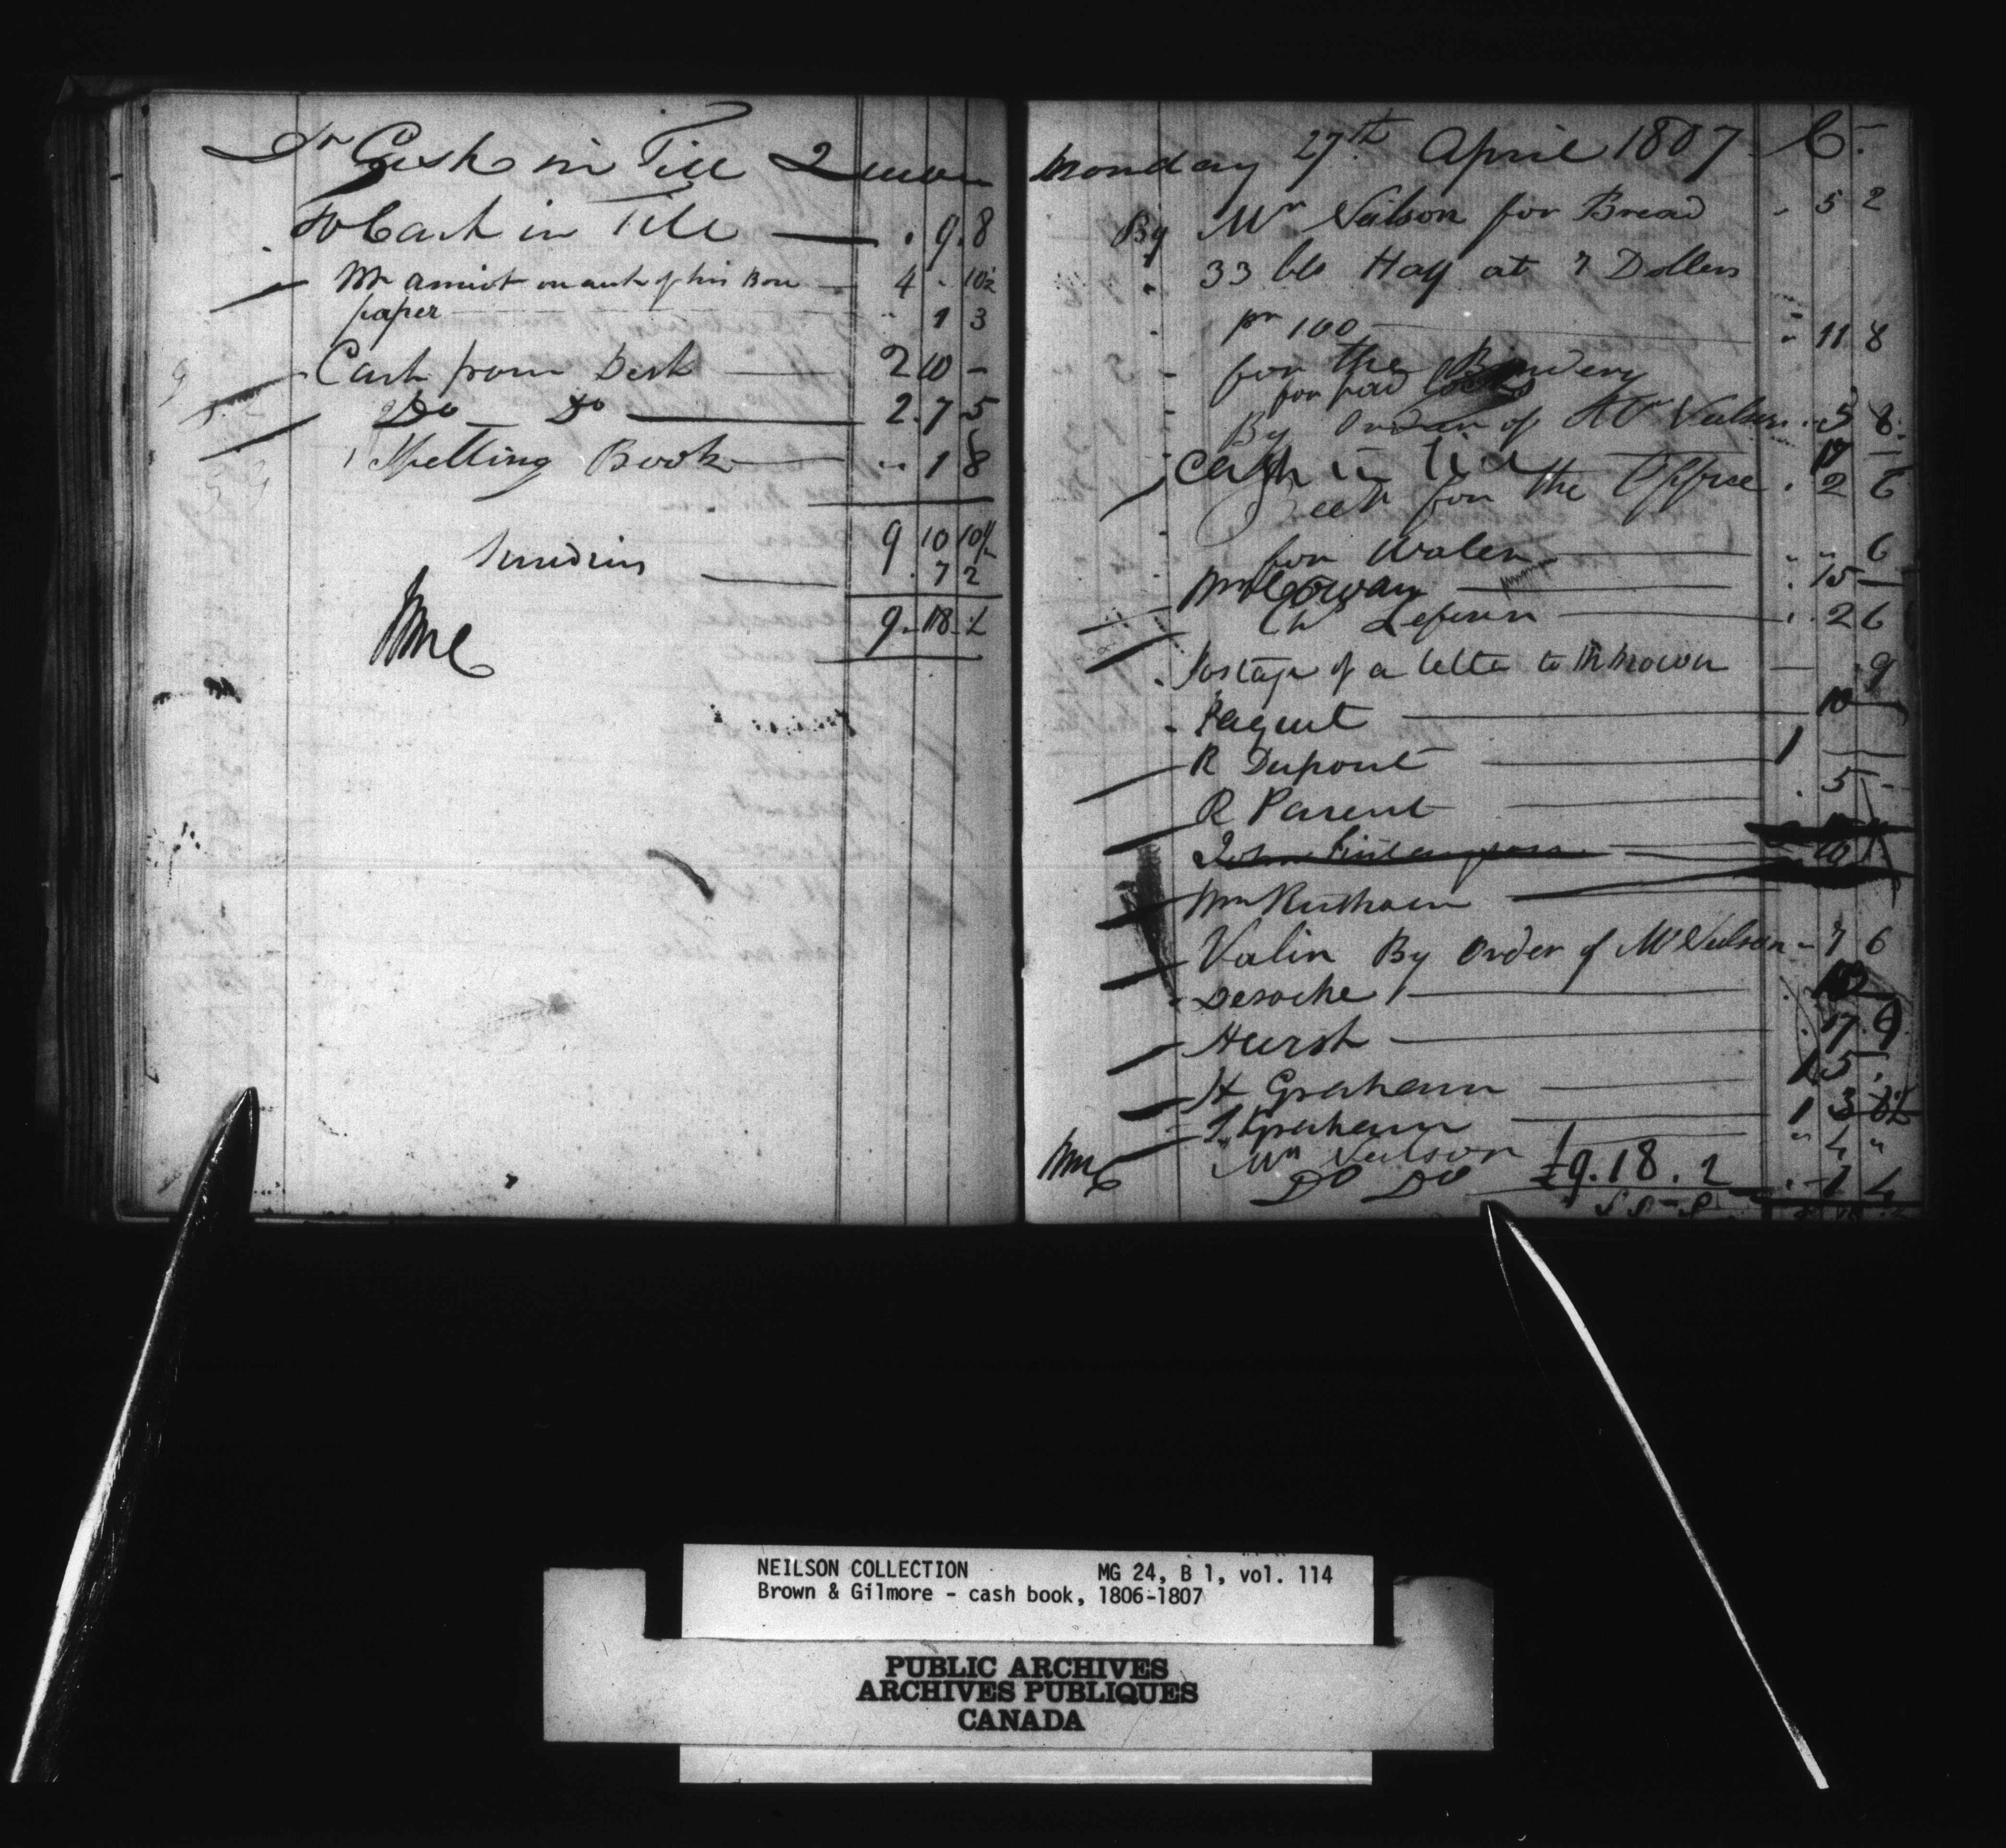 Dr Cash in Till Quebec
To Cash in Till . 9 . 8
Mr Amiot on acct of his Bon 4 - 10½
paper 1 3
Cash from Desk 2 10 -
Do Do 2 . 7 . 5
1 Spelling Book 1 8
9 10 10½
Sundries . 7 2
9 - 18 - 2
Monday 27th April 1807 Cr
By Mr Neilson for Bread 5 2
33 Hay at 7 Dollers
pr 100 11 8
for the Bindery
for pad Locks
By Order of Mr Neilson 5 8
Cash in Till 17 -
for the Office . 2 6
for Water 6
Wm Cowan 15 -
Ch Lefevre 2 6
Postage of a letter to Mr Brown 9
Paquet 10 -
R Dupont 1
R Parent 5 -
John
Wm Ruthven
Valin By Order of Mr Neilson 7 6
Deroche 10
Hursh 17 9
H Graham 1 5
Graham 1 3
Mr Neilson 4 "
Do Do £9 . 18 . 2 1 4
NEILSON COLLECTION MG 24, B 1, vol. 114
Brown & Gilmore - cash book, 1806-1807
PUBLIC ARCHIVES
ARCHIVES PUBLIQUES
CANADA